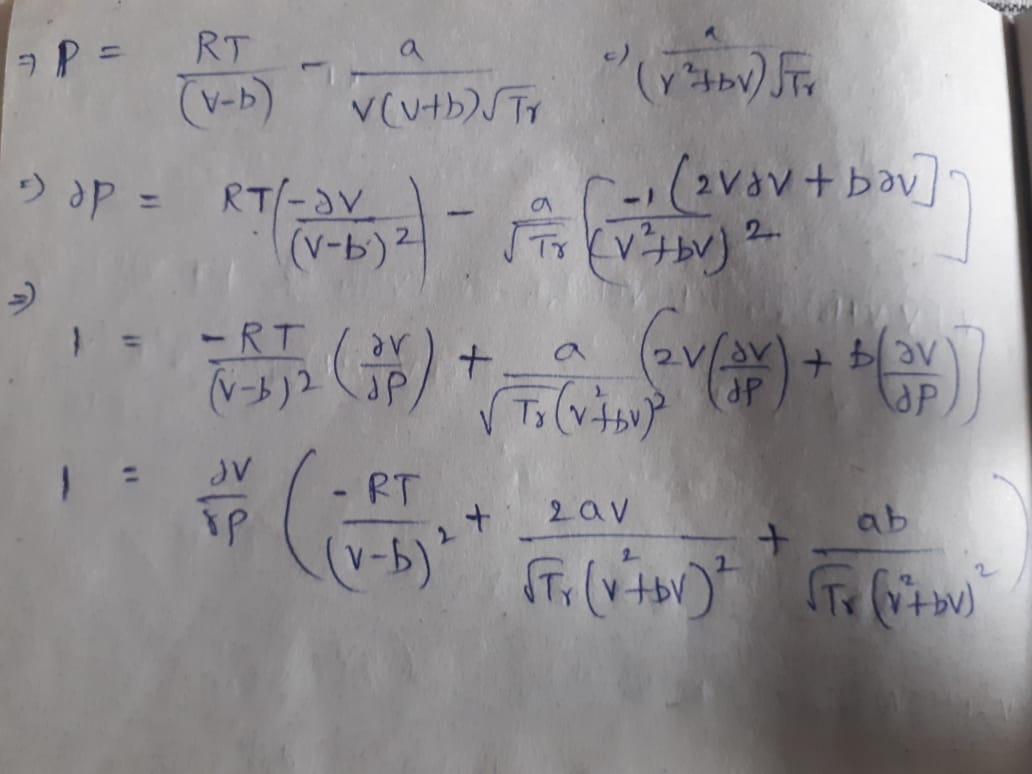 ⇒ P = RT/(V-b) - a/(V(V+b)√Tr) ⇒ a/((V²+bV)√Tr)
⇒ ∂P = RT(-∂V/(V-b)²) - a/√Tr [-1(2V∂V + b∂V]/(V²+bV)²]
⇒
1 = -RT/(V-b)² (∂V/∂P) + a/(√Tr(V²+bV)²) (2V(∂V/∂P) + b(∂V/∂P)]
1 = ∂V/∂P (-RT/(V-b)² + 2aV/(√Tr(V²+bV)²) + ab/(√Tr(V²+bV)²))